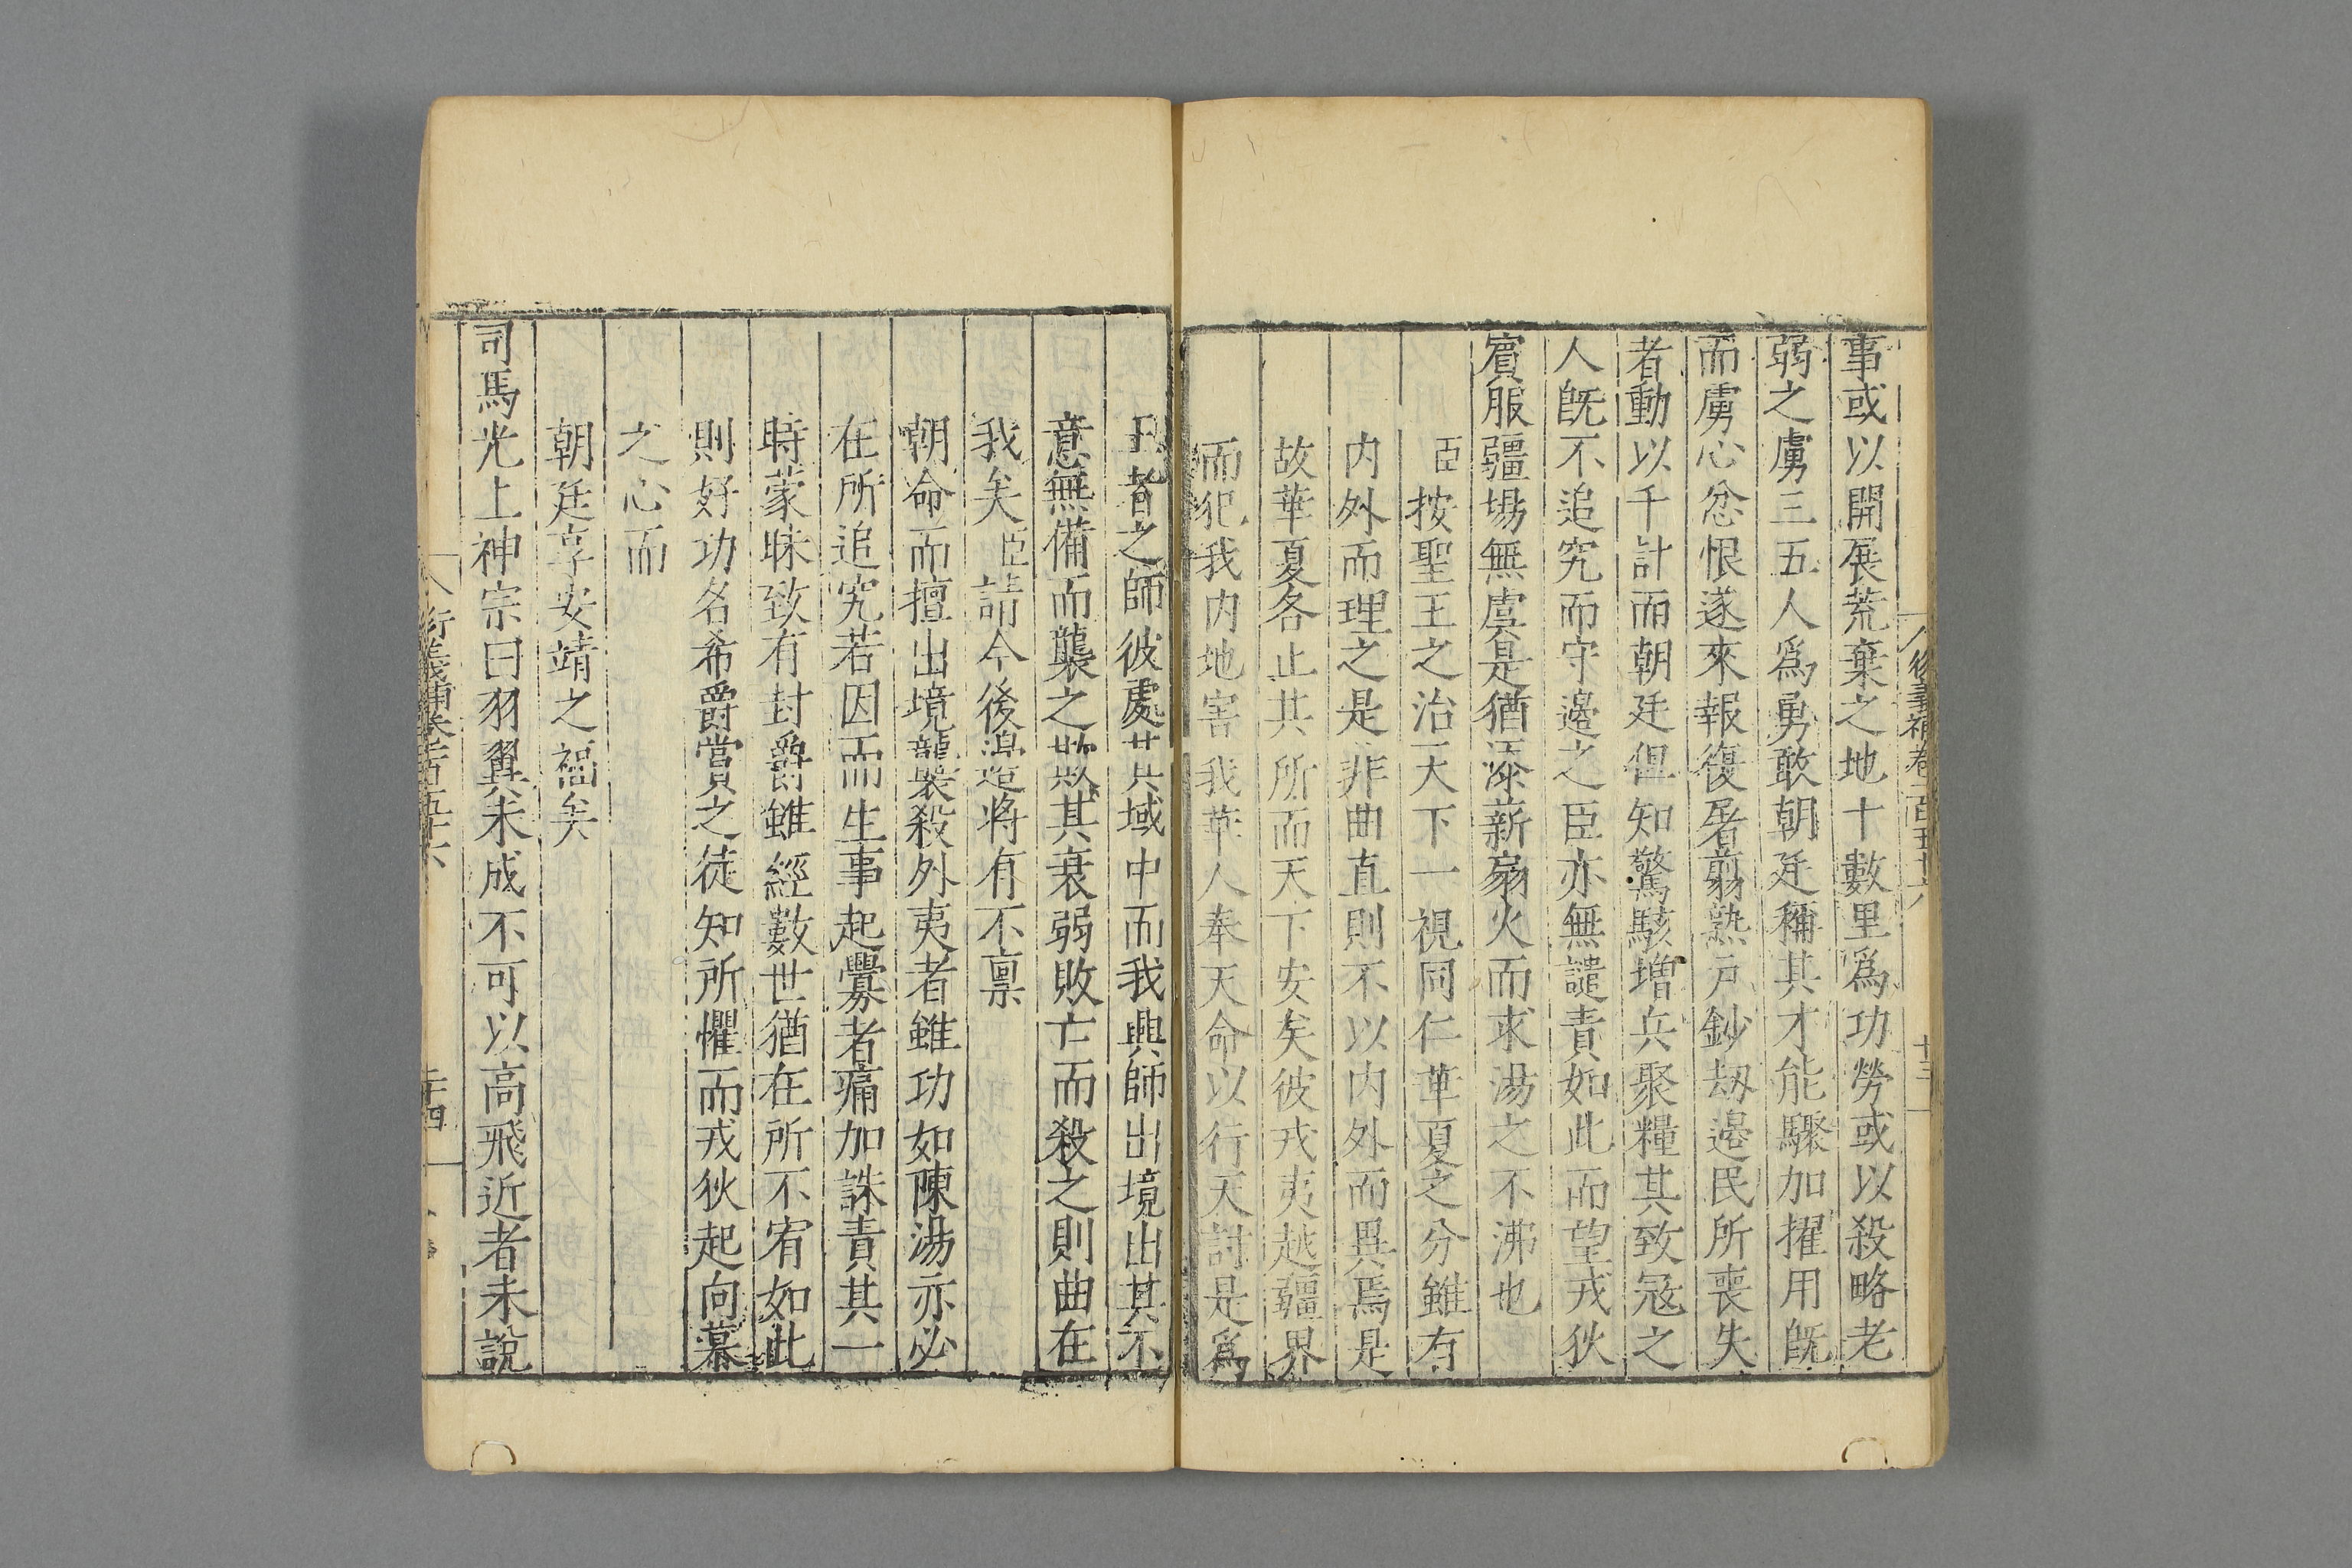 事或以開展荒棄之地十數里爲功勞或以殺略老
弱之虜三五人爲勇敢朝廷稱其才能驟加擢用旣
而虜心忿恨遂來報復屠翦熟戶鈔劫邊民所喪失
者動以千計而朝廷但知驚駭增兵聚糧其致冦之
人旣不追究而守邊之臣亦無譴責如此而望戎狄
賓服疆埸無虞是猶添薪扇火而求湯之不沸也
臣按聖王之治天下一視同仁華夏之分雖有
内外而理之是非曲直則不以内外而異焉是
故華夏各止其所而天下安矣彼戎夷越疆界
而犯我内地害我華人奉天命以行天討是爲
王者之師彼處其域中而我興師出境出其不
意無備而襲之欺其衰弱敗亡而殺之則曲在
我矣臣請今後邊將有不禀
朝命而擅出境襲殺外夷者雖功如陳湯亦必
在所追究若因而生事起釁者痛加誅責其一
時蒙昧致有封爵雖經數世猶在所不宥如此
則好功名希爵賞之徒知所懼而戎狄起向慕
之心而
朝廷享安靖之福矣
司馬光上神宗曰羽翼未成不可以高飛近者未說
衍義補卷一百五十六
十四